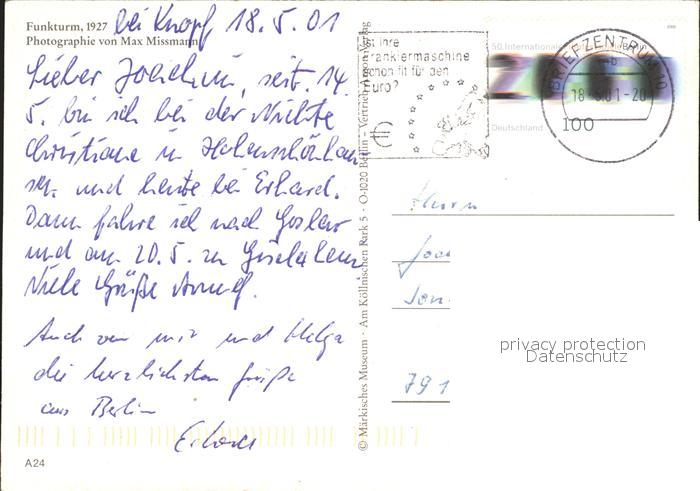 Funkturm, 1927
Photographie von Max Missmann
bei Knopf 18.5.01
Lieber Joachim, seit 14.
5. bin ich bei der Nichte
Christiane in Hohenschönhau
sen und heute bei Erhard.
Dann fahre ich nach Goslar
und am 20.5. zu Gisela
Viele Grüße
Auch von mir und Helga
die herzlichsten Grüße
aus Berlin
Erhard
A24
© Märkisches Museum · Am Köllnischen Park 5 · O-1020 Berlin · Vertrieb Argon Verlag
Ist Ihre
Frankiermaschine
schon fit für den
Euro?
50. Internationale
Deutschland
100
BRIEFZENTRUM 10
18.5.01-20
Herrn
791
privacy protection
Datenschutz